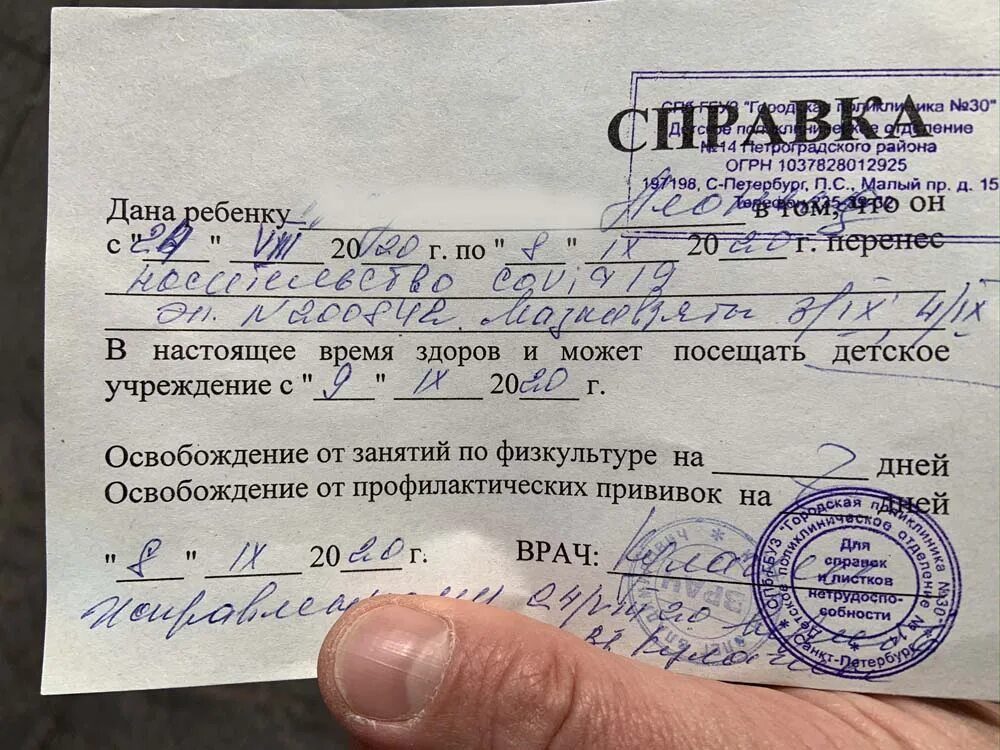 СПб ГБУЗ "Городская поликлиника №30"
Детское поликлиническое отделение
№14 Петроградского района
ОГРН 1037828012925
197198, С-Петербург, П.С., Малый пр. д. 15
СПРАВКА
Дана ребенку в том, что он
с "24" VIII 2020 г. по "8" IX 2020 г. перенес
носительство covid 19
эп. N200842. Мазки взяты 3/IX 4/IX
В настоящее время здоров и может посещать детское
учреждение с "9" IX 2020 г.
Освобождение от занятий по физкультуре на дней
Освобождение от профилактических прививок на дней
"8" IX 2020 г. ВРАЧ:
24/VIII 20
СПб ГБУЗ "Городская поликлиника №30"
Детское поликлиническое отделение №14
Санкт-Петербург
Для
справок
и листков
нетрудоспо-
собности
ВРАЧ